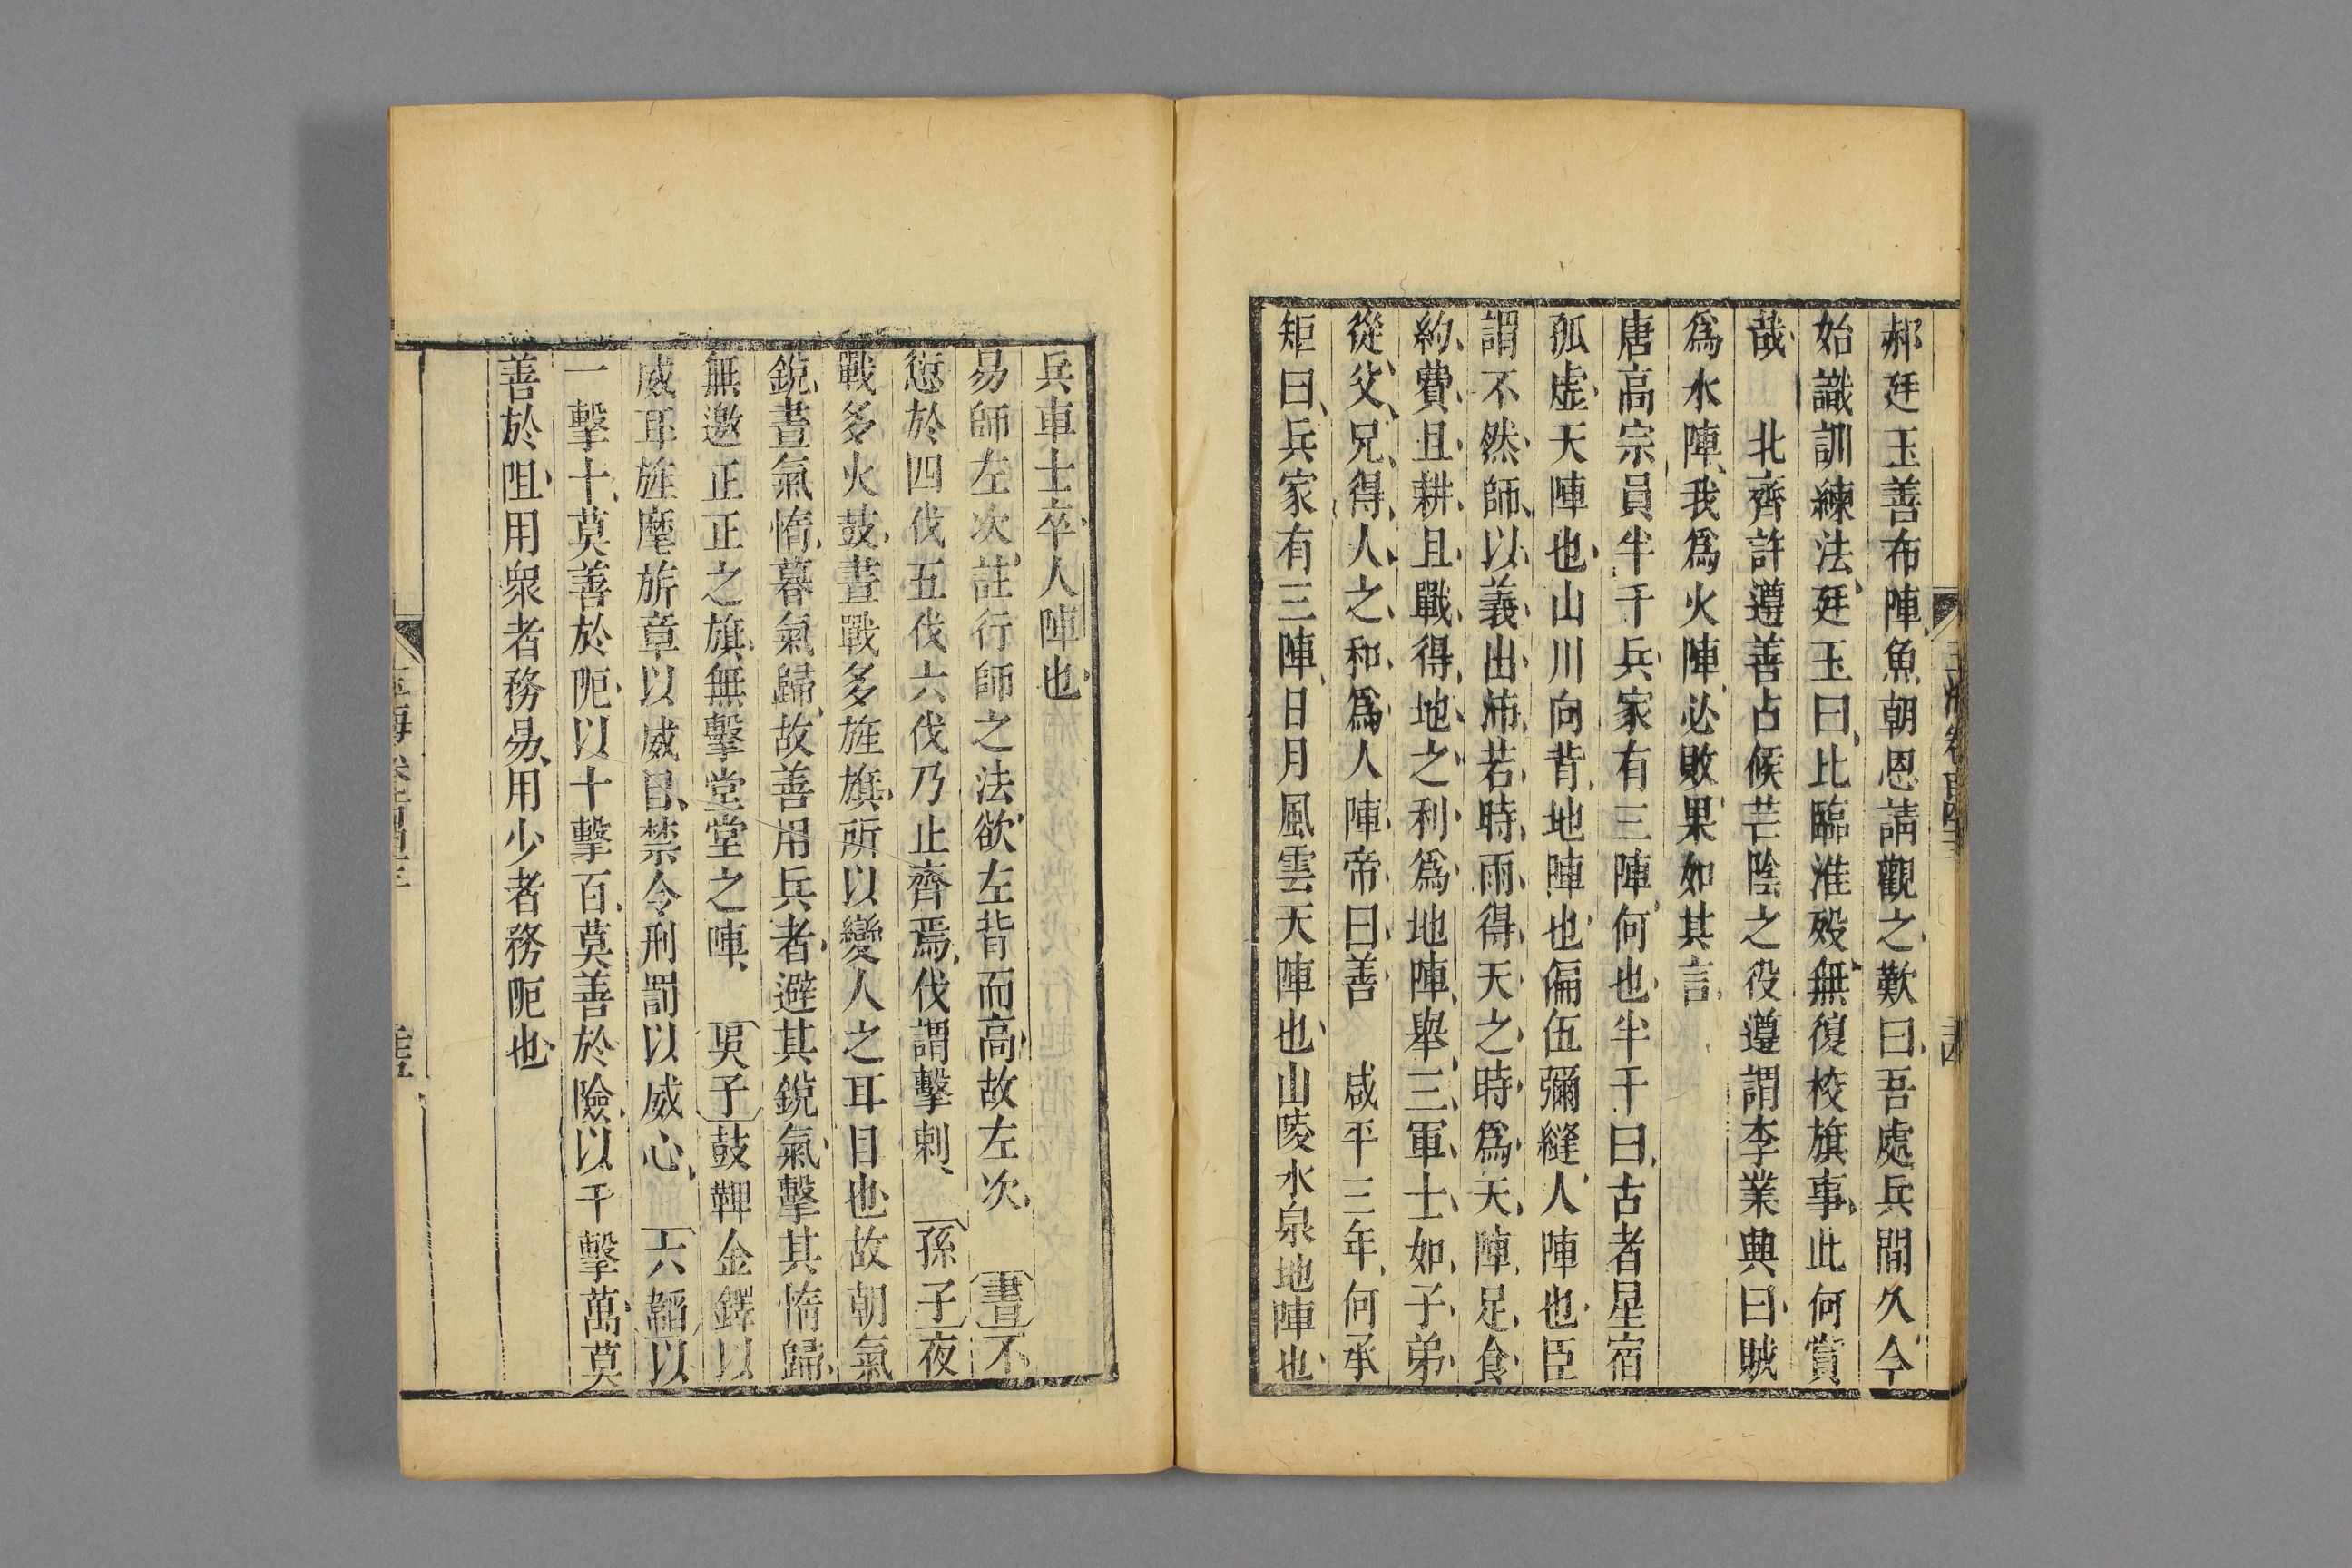 郝廷玉善布陣魚朝恩請觀之歎曰吾處兵間久今
始識訓練法廷玉曰比臨淮歿無復校旗事此何賞
哉　北齊許遵善占候芒陰之役遵謂李業典曰賊
爲水陣我爲火陣必敗果如其言
唐高宗員半千兵家有三陣何也半千曰古者星宿
孤虛天陣也山川向背地陣也偏伍彌縫人陣也臣
謂不然師以義出沛若時雨得天之時爲天陣足食
約費且耕且戰得地之利爲地陣舉三軍士如子弟
從父兄得人之和爲人陣帝曰善　咸平三年何承
矩曰兵家有三陣日月風雲天陣也山陵水泉地陣也
兵車士卒人陣也
易師左次註行師之法欲左背而高故左次　書不
愆於四伐五伐六伐乃止齊焉伐謂擊刺　孫子夜
戰多火鼓晝戰多旌旗所以變人之耳目也故朝氣
銳晝氣惰暮氣歸故善用兵者避其銳氣擊其惰歸
無邀正正之旗無擊堂堂之陣　吳子鼓鞞金鐸以
威耳旌麾旂章以威目禁令刑罰以威心　六韜以
一擊十莫善於阨以十擊百莫善於險以千擊萬莫
善於阻用衆者務易用少者務阨也